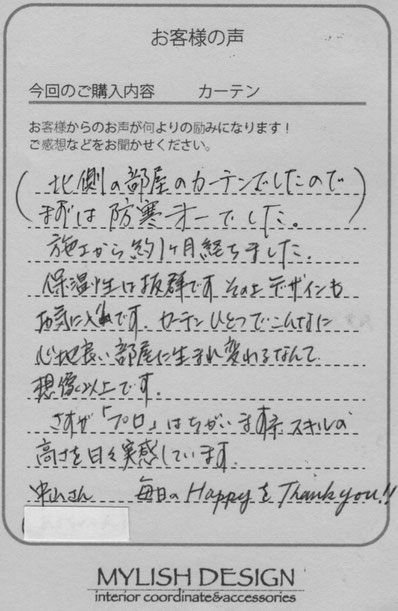 お客様の声
今回のご購入内容　カーテン
お客様からのお声が何よりの励みになります！
ご感想などをお聞かせください。
(北側の部屋のカーテンでしたので
まずは防寒第一でした。)
施工から約1ヶ月経ちました。
保温性は抜群です その上デザインも
お気に入りです. カーテンひとつでこんなに
心地良い部屋に生まれ変わるなんて
想像以上です.
さすが「プロ」はちがいますネ スキルの
高さを日々実感しています.
中山さん　毎日のHappyをThank you!!
MYLISH DESIGN
interior coordinate&accessories